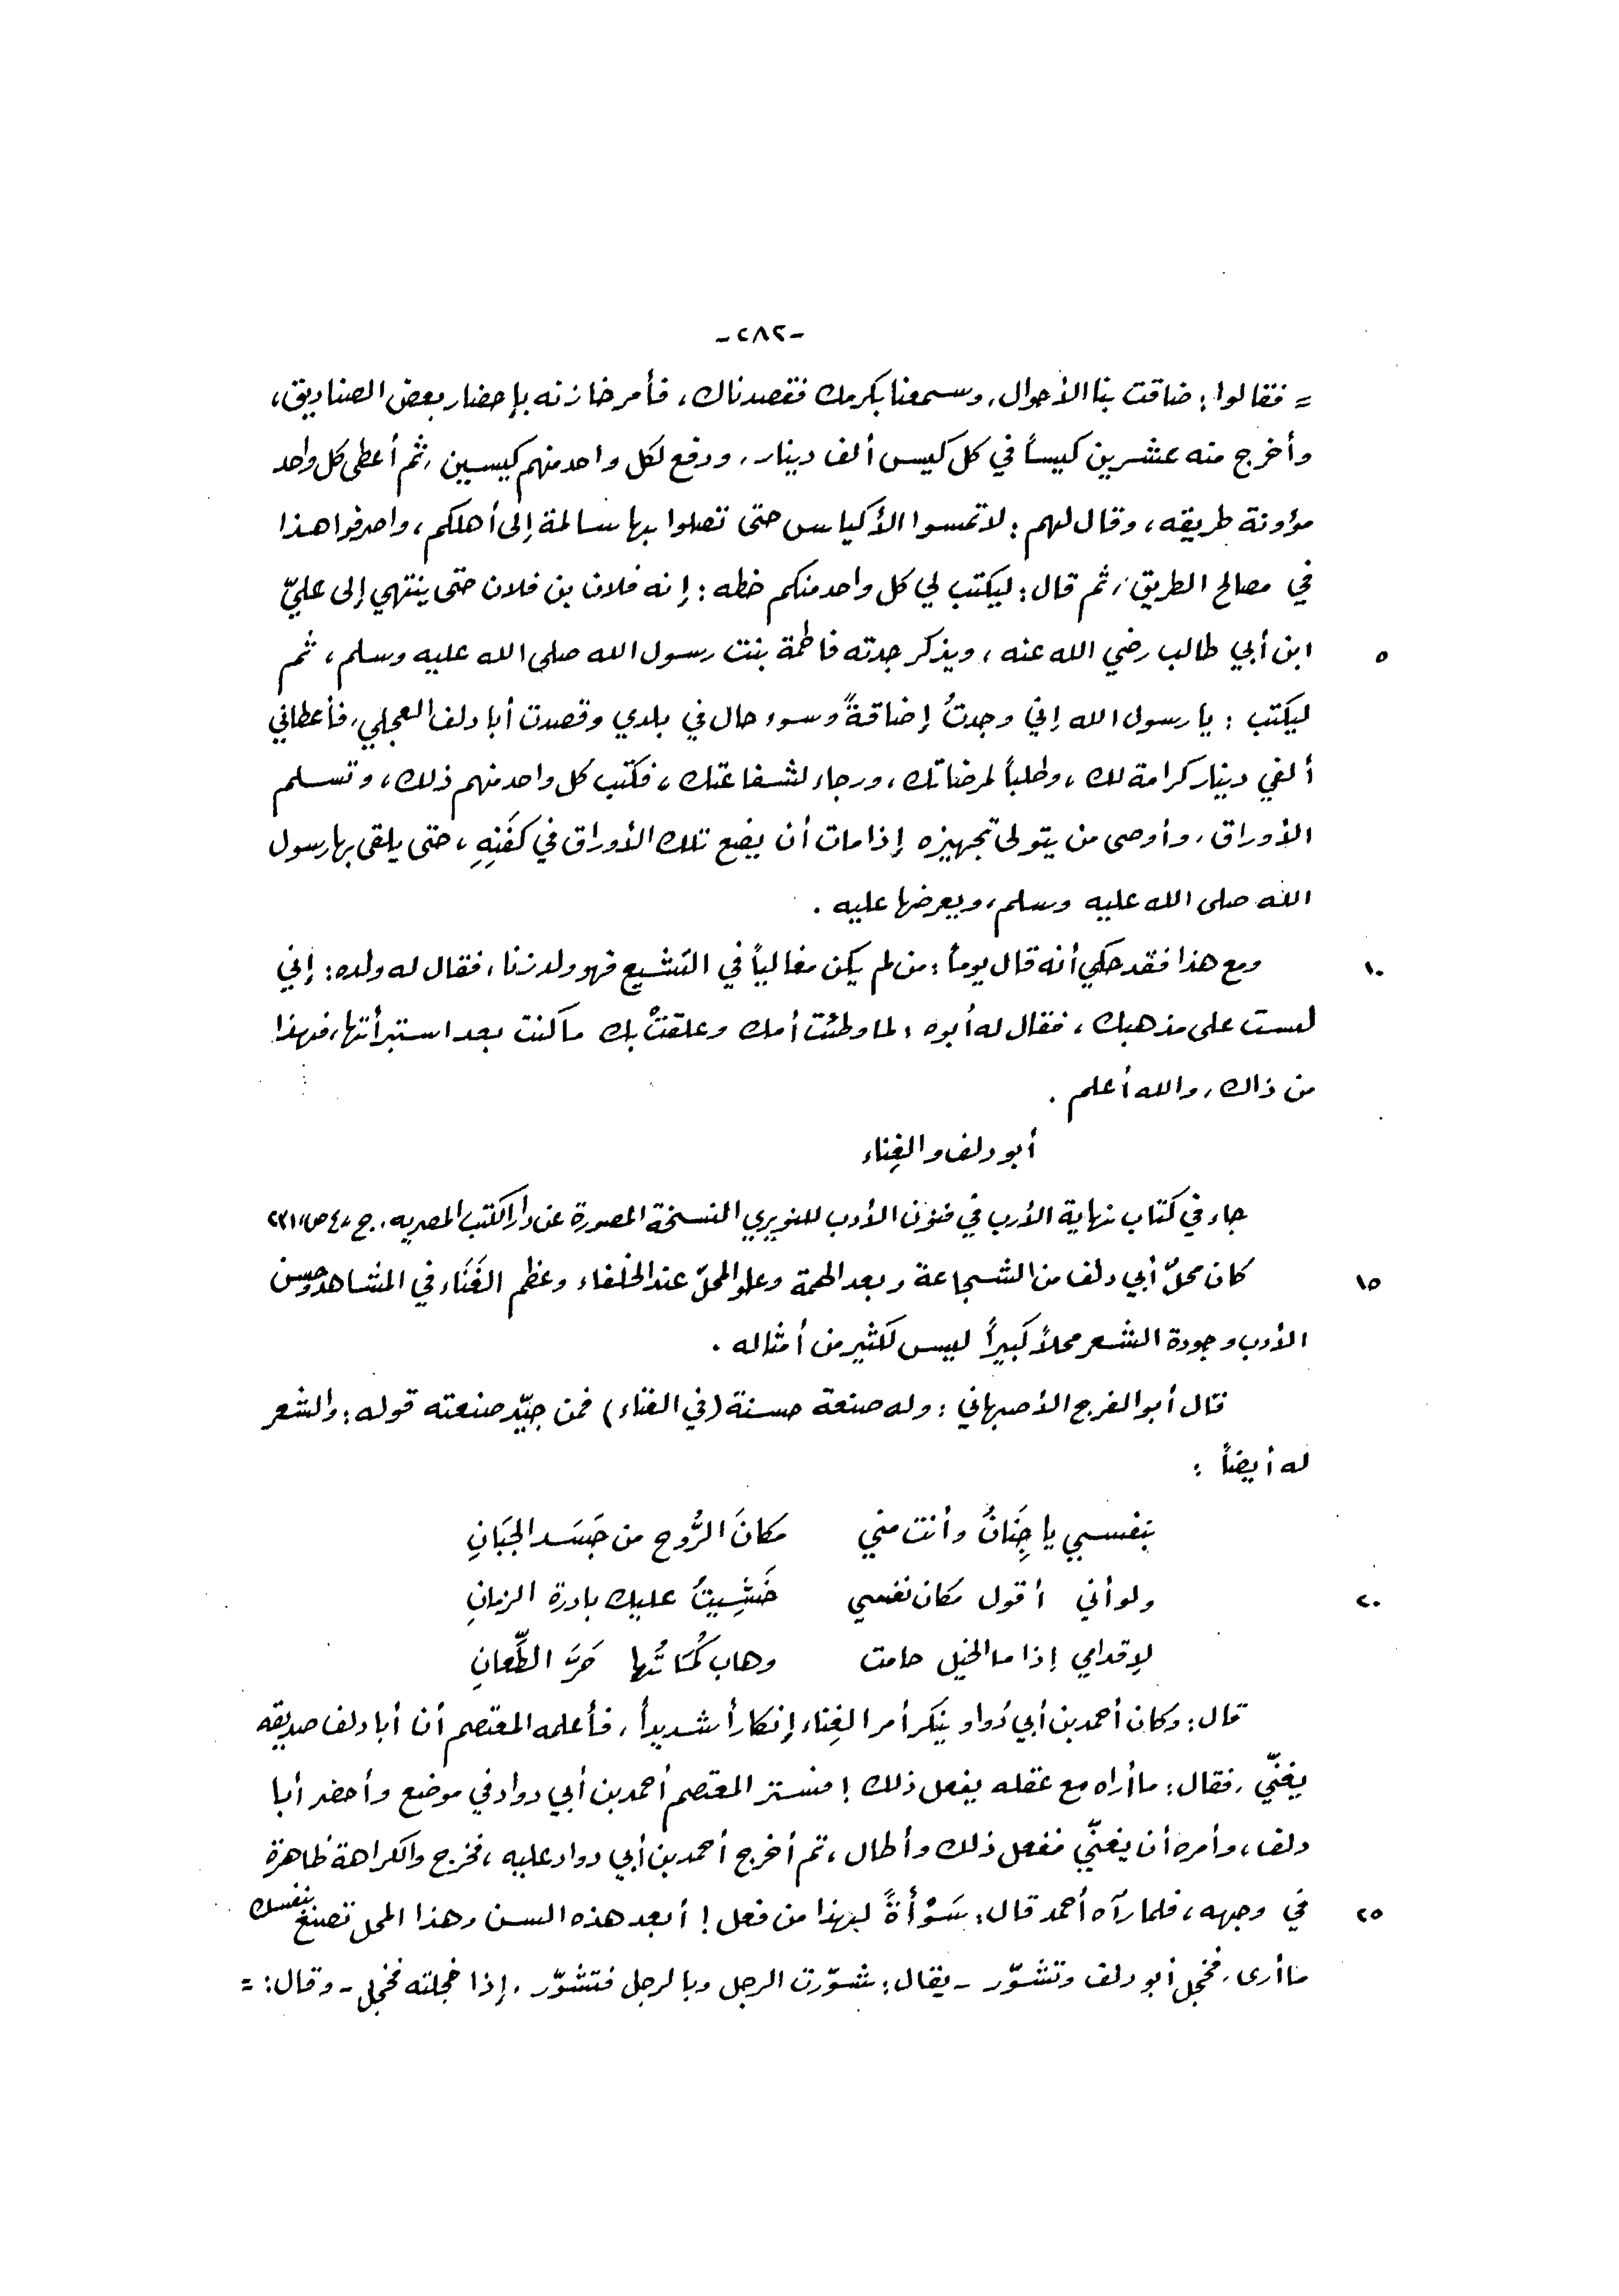 -٢٨٢-
= فقالوا: ضاقت بنا الأحوال، وسمعنا بكرمك فقصدناك، فأمر خازنه بإحضار بعض الصناديق،
وأخرج منه عشرين كيساً في كل كيس ألف دينار، ودفع لكل واحد منهم كيسين، ثم أعطى كل واحد
مؤونة طريقه، وقال لهم: لا تمسوا الأكياس حتى تصلوا بها سالمة إلى أهلكم، واصرفوا هذا
في مصالح الطريق، ثم قال: ليكتب لي كل واحد منكم خطه: إنه فلان بن فلان حتى ينتهي إلى عليّ
٥ ابن أبي طالب رضي الله عنه، ويذكر جدته فاطمة بنت رسول الله صلى الله عليه وسلم، ثم
ليكتب: يا رسول الله إني وجدتُ إضاقةً وسوء حال في بلدي وقصدت أبا دلف العجلي، فأعطاني
ألفي دينار كرامة لك، وطلباً لمرضاتك، ورجاء لشفاعتك، فكتب كل واحد منهم ذلك، وتسلم
الأوراق، وأوصى من يتولى تجهيزه إذا مات أن يضع تلك الأوراق في كفَنِهِ، حتى يلقى بها رسول
الله صلى الله عليه وسلم، ويعرضها عليه.
١٠ ومع هذا فقد حكي أنه قال يوماً: من لم يكن مغالياً في التشيع فهو ولد زنا، فقال له ولده: إني
لست على مذهبك، فقال له أبوه: لما وطئت أمك وعلقتْ بك ما كنت بعد استبرأتها، فهذا
من ذاك، والله أعلم.
أبو دلف والغِناء
جاء في كتاب نهاية الأرب في فنون الأدب للنويري النسخة المصورة عن دار الكتب المصريه. ج ٤، ص ٢٣١،
١٥ كان محلّ أبي دلف من الشجاعة وبعد الهمة وعلو المحلّ عند الخلفاء وعظم الغَنَاء في المشاهد وحسن
الأدب وجودة الشعر محلاً كبيراً ليس لكثير من أمثاله.
قال أبو الفرج الأصبهاني: وله صنعة حسنة (في الغناء) فمن جيّد صنعته قوله: والشعر
له أيضاً:
بنفسي يا جِنَانُ وأنت مني مكانَ الرُّوح من جَسَد الجَبَانِ
٢٠ ولو أني أقول مكان نفسي خَشِيتُ عليك بادرة الزمانِ
لإقدامي إذا ما الخيل حامت وهاب كُمَاتُها حَرَّ الطِّعانِ
قال: وكان أحمد بن أبي دُواد ينكر أمر الغِناء إنكاراً شديداً، فأعلمه المعتصم أن أبا دلف صديقه
يغنّي، فقال: ما أراه مع عقله يفعل ذلك! فستر المعتصم أحمد بن أبي دواد في موضع وأحضر أبا
دلف، وأمره أن يغنّي ففعل ذلك وأطال، ثم أخرج أحمد بن أبي دواد عليه، فخرج والكراهة ظاهرة
٢٥ في وجهه، فلما رآه أحمد قال: سَوْأَةً لهذا من فعل! أبعد هذه السن وهذا المحل تصنع بنفسك
ما أرى، فخجل أبو دلف وتشوّر - يقال: شوّرت الرجل وبالرجل فتشوّر، إذا خجلته فخجل - وقال: =